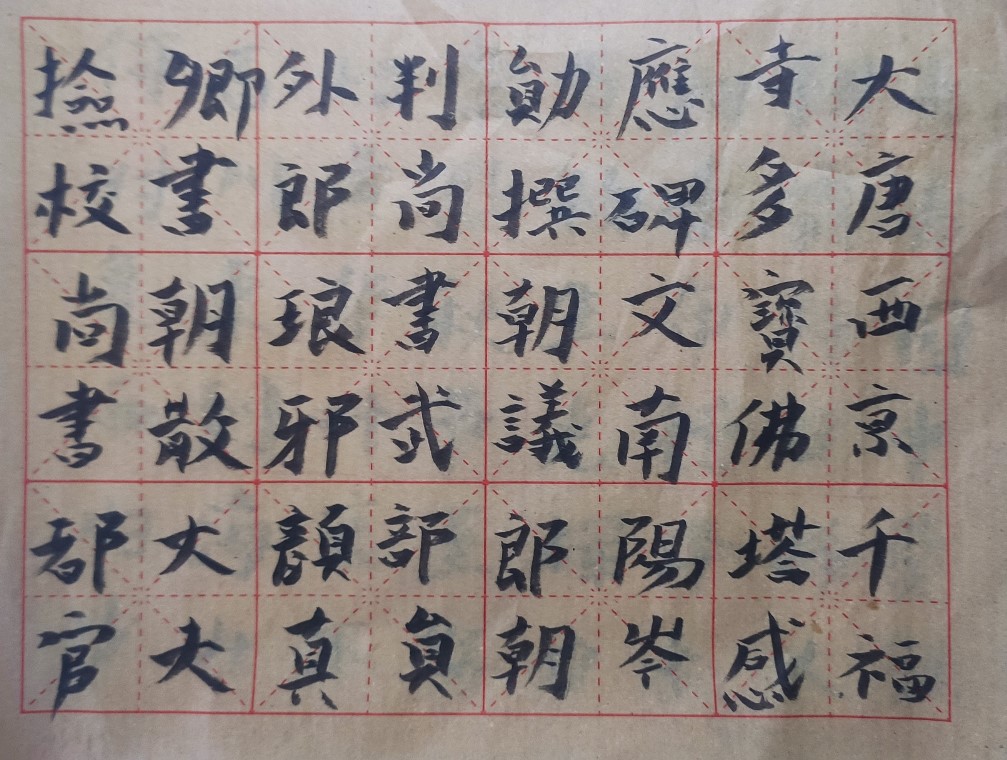 大唐西京千福
寺多寶佛塔感
應碑文南陽岑
勛撰朝議郎朝
判尚書武部員
外郎琅邪顏真
卿書朝散大夫
撿校尚書都官